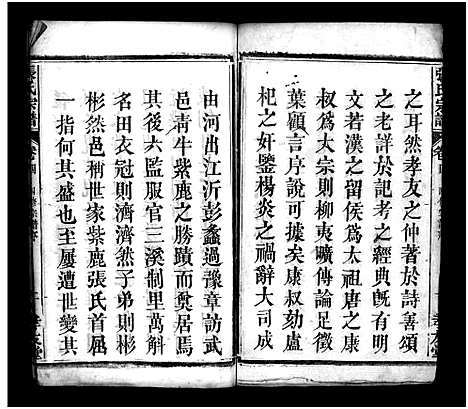 之耳然孝友之仲著於詩善頌
之老詳於記考之經典旣有明
文若漢之留侯爲太祖唐之康
叔爲大宗則柳夷曠傳論最優
葉顧言序可據矣康叔劾盧
杞之奸鑒楊炎之禍辭大司成
由河出江沂彭蠡過豫章訪武
邑青牛紫鹿之勝蹟而奠居焉
其後六監服官三溪制里萬畝
名田衣冠則濟濟然子弟則彬
彬然邑稱世家紫鹿張氏首屈
一指何其盛也至屢遭世變其
張氏宗譜
卷四